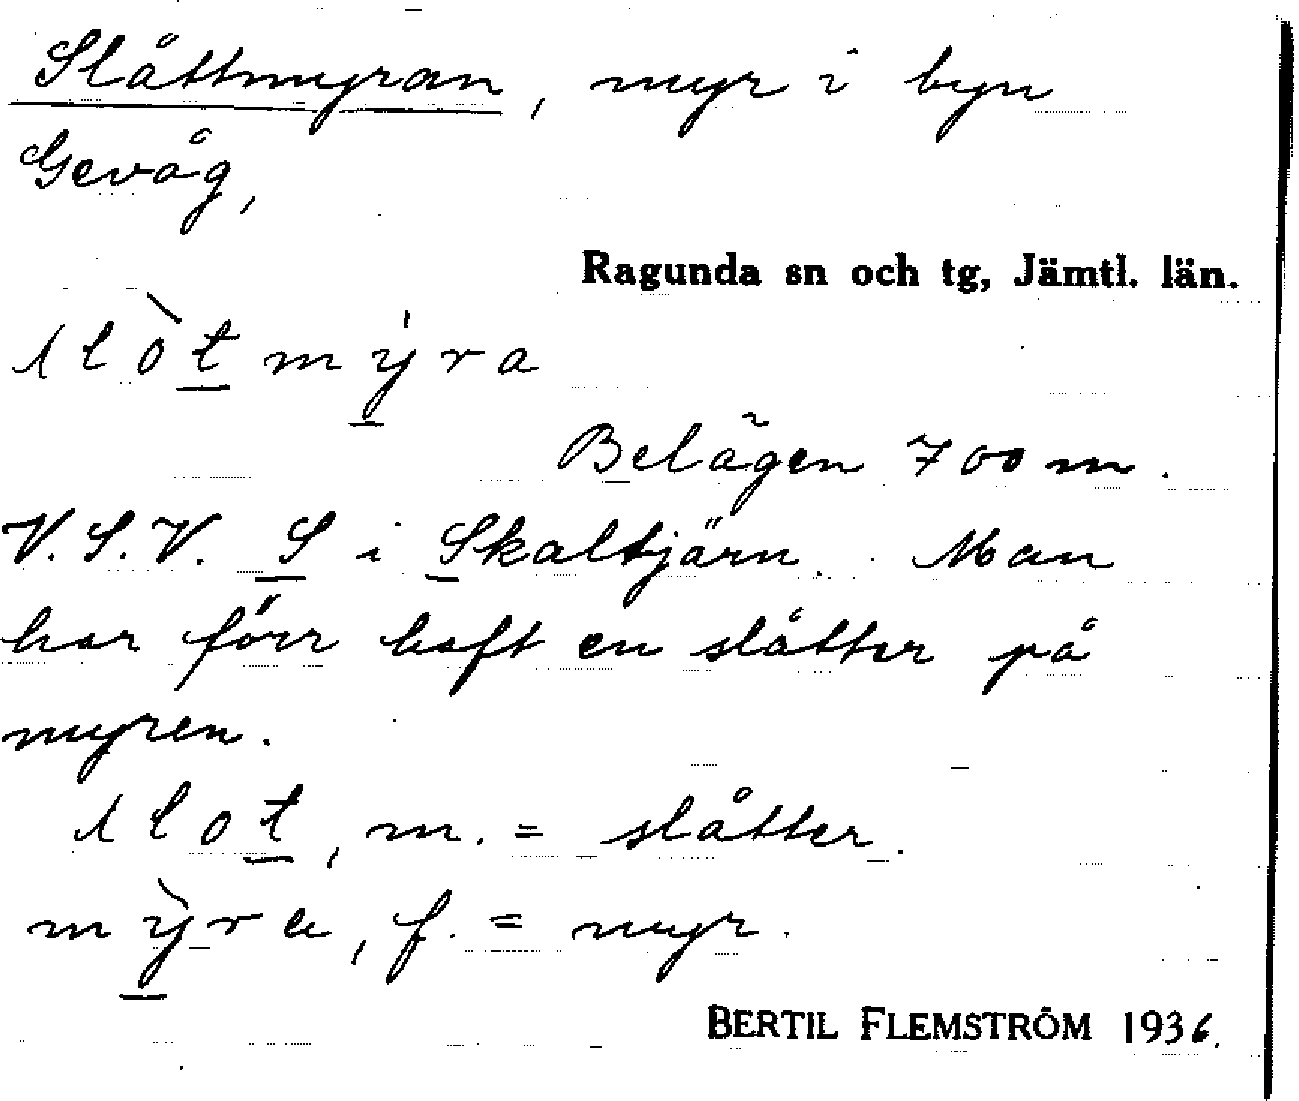 Slåttmyran, myr i byn
Gevåg,
Ragunda sn och tg, Jämtl. län.
slòt mýra
Belägen 700 m.
V.S.V. S i Skaltjärn. Man
har förr haft en slåtter på
myren.
slot, m. = slåtter.
mỳra, f. = myr.
BERTIL FLEMSTRÖM 1936.